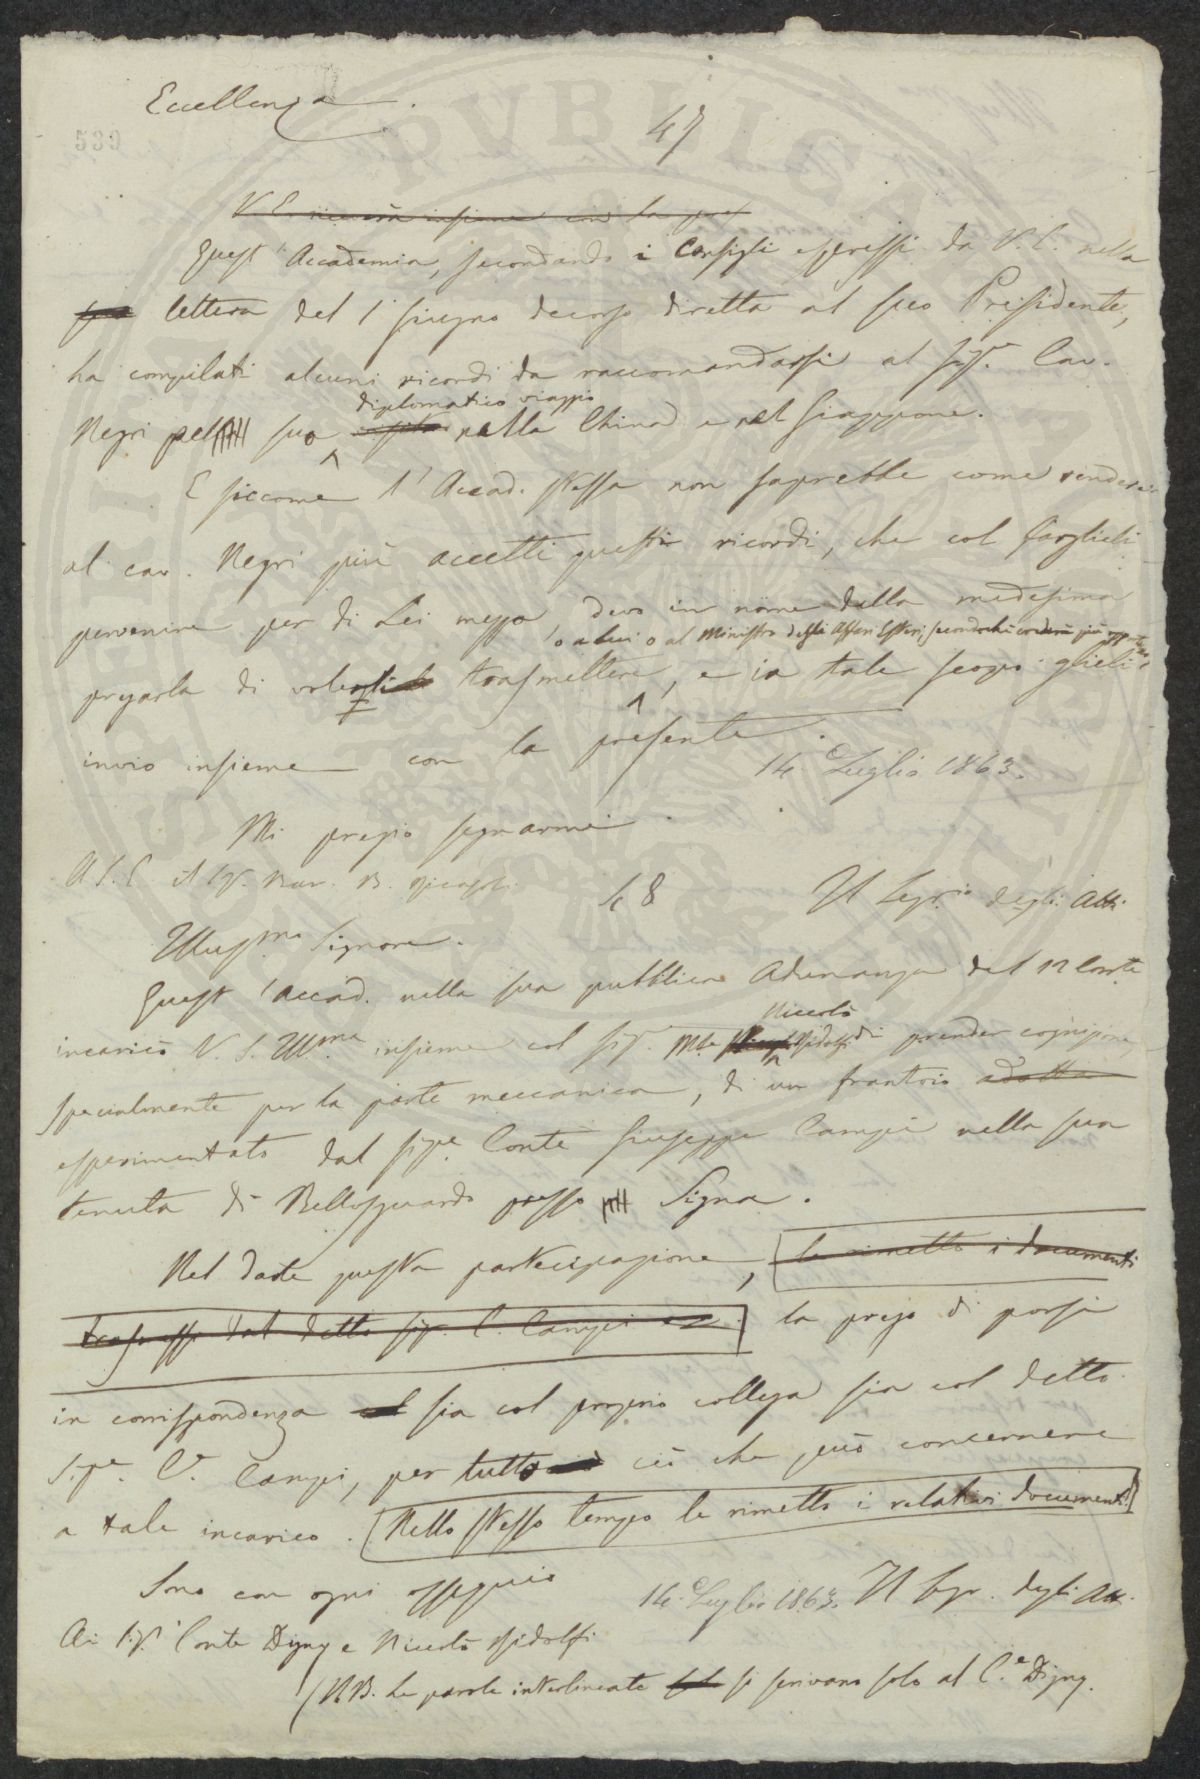 Eccellenza.
47
539
V.E. riceverà insieme con la pres.
Quest'Accademia, secondando i Consigli espressi da V.E. nella
sua lettera del 1° giugno decorso diretta al suo Presidente,
ha compilati alcuni ricordi da raccomandarsi al Sigr. Cav.
diplomatico viaggio
Negri pel suo nella China e nel Giappone.
E siccome l'Accad. stessa non saprebbe come rendere
al cav. Negri più accetti questi ricordi, che col farglieli
pervenire per di Lei mezzo, devo in nome della medesima
o a lui o al Ministro degli Affari Esteri, secondochè crederà più opportuno
pregarla di trasmettere, e in tale scopo glieli
invio insieme con la presente.
14 Luglio 1863.
Mi pregio segnarmi
A S.E. il Sigr. Bar. B. Ricasoli
48
Il Segrio. degli Atti
Illusmo Signore.
Quest'Accad. nella sua pubblica Adunanza del 12 Corrte
Niccolò
incaricò V.S. Illma insieme col Sigr. Mse Ridolfi di prender cognizione,
specialmente per la parte meccanica, di un frantoio adotta
esperimentato dal Sigre. Conte Giuseppe Campi nella sua
tenuta di Bellosguardo presso Signa.
Nel darle questa partecipazione, le rimetto i documenti
trasmessi dal detto Sigr. C. Campi la prego di porsi
in corrispondenza sia col proprio collega sia col detto
Sigre. Ce. Campi, per tutto ciò che può concernere
a tale incarico. Nello stesso tempo le rimetto i relativi documenti.
Sono con ogni ossequio
14 Luglio 1863. Il Segr. degli Atti.
Ai Sigri Conte Digny e Niccolò Ridolfi
(NB. Le parole interlineate si scrivano solo al Ce. Digny.